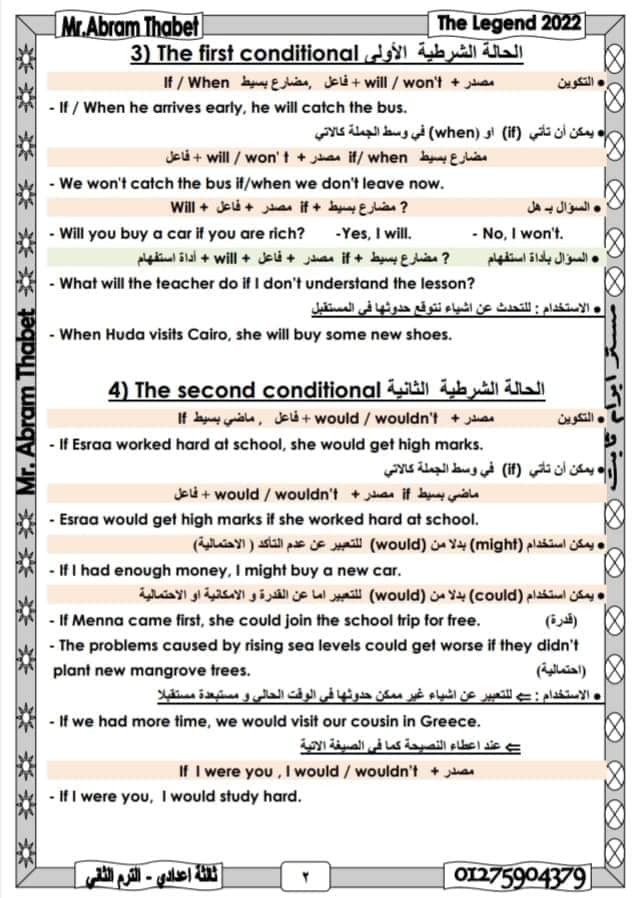 Mr.Abram Thabet
The Legend 2022
3) The first conditional الحالة الشرطية الأولى
• التكوين If / When مضارع بسيط , فاعل + will / won't + مصدر
- If / When he arrives early, he will catch the bus.
• يمكن أن تأتي (if) او (when) في وسط الجملة كالاتي
فاعل + will / won' t + مصدر if/ when مضارع بسيط
- We won't catch the bus if/when we don't leave now.
• السؤال بـ هل Will + فاعل + مصدر if + مضارع بسيط ?
- Will you buy a car if you are rich? -Yes, I will. - No, I won't.
• السؤال بأداة استفهام أداة استفهام + will + فاعل + مصدر if + مضارع بسيط ?
- What will the teacher do if I don't understand the lesson?
• الاستخدام : للتحدث عن اشياء نتوقع حدوثها في المستقبل
- When Huda visits Cairo, she will buy some new shoes.
4) The second conditional الحالة الشرطية الثانية
• التكوين If ماضي بسيط , فاعل + would / wouldn't + مصدر
- If Esraa worked hard at school, she would get high marks.
• يمكن أن تأتي (if) في وسط الجملة كالاتي
فاعل + would / wouldn't + مصدر if ماضي بسيط
- Esraa would get high marks if she worked hard at school.
• يمكن استخدام (might) بدلا من (would) للتعبير عن عدم التأكد ( الاحتمالية)
- If I had enough money, I might buy a new car.
• يمكن استخدام (could) بدلا من (would) للتعبير اما عن القدرة و الامكانية او الاحتمالية
- If Menna came first, she could join the school trip for free. (قدرة)
- The problems caused by rising sea levels could get worse if they didn't
plant new mangrove trees. (احتمالية)
• الاستخدام : ⇐ للتعبير عن اشياء غير ممكن حدوثها في الوقت الحالي و مستبعدة مستقبلا
- If we had more time, we would visit our cousin in Greece.
⇐ عند اعطاء النصيحة كما في الصيغة الاتية
If I were you , I would / wouldn't + مصدر
- If I were you, I would study hard.
Mr. Abram Thabet
مستر ابرام ثابت
ثالثة اعدادي - الترم الثاني
٢
01275904379